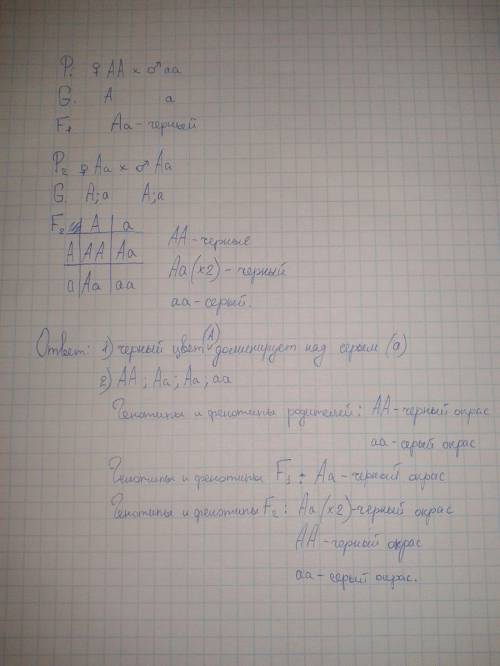 P. ♀ AA × ♂ aa
G. A a
F1 Aa - черный
P2 ♀ Aa × ♂ Aa
G. A;a A;a
F2 A a
A AA Aa
a Aa aa
AA - черные
Aa (x2) - черный
aa - серый.
Ответ: 1) черный цвет (A) доминирует над серым (a)
2) AA; Aa; Aa; aa
Генотипы и фенотипы родителей: AA - черный окрас
aa - серый окрас
Генотипы и фенотипы F1: Aa - черный окрас
Генотипы и фенотипы F2: Aa (x2) - черный окрас
AA - черный окрас
aa - серый окрас.